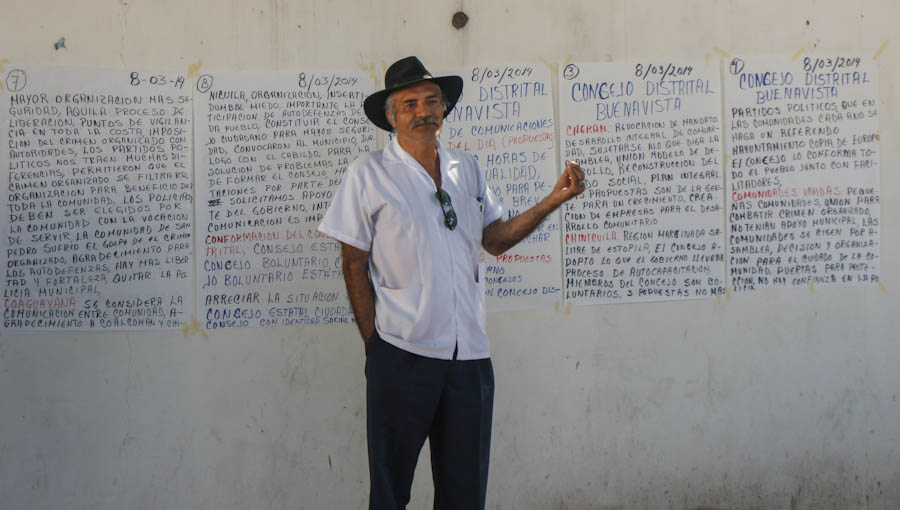 7
8-03-14
MAYOR ORGANIZACION MAS SE-
GURIDAD, AQUILA PROCESO DE
LIBERACION, PUNTOS DE VIGILAN-
CIA EN TODA LA COSTA, IMPOSI-
CION DEL CRIMEN ORGANIZADO CON
AUTORIDADES, LOS PARTIDOS PO-
LITICOS NOS TRAEN MUCHAS DI-
FERENCIAS, PERMITIERON QUE EL
CRIMEN ORGANIZADO SE FILTRARA,
ORGANIZACION PARA BENEFICIO DE
TODA LA COMUNIDAD, LOS POLICIAS
DEBEN SER ELEGIDOS POR
LA COMUNIDAD CON LA VOCACION
DE SERVIR, LA COMUNIDAD DE SAN
PEDRO SUFRIO EL GOLPE DEL CRIMEN
ORGANIZADO, AGRADECIMIENTO PARA
LOS AUTODEFENZAS, HAY MAS LIBER
TAD Y FORTALEZA, QUITAR LA PO
LICIA MUNICIPAL,
COAGUAYANA SE CONSIDERA LA
COMUNICACION ENTRE COMUNIDAD, A-
GRADECIMIENTO A COALCOMAN Y CHI-
8
8/03/2014
NICUILA, ORGANIZACION, INSERTI
DUMBRE MIEDO, IMPORTANTE LA
TICIPACION DE AUTODEFENZAS DE
DA PUEBLO, CONSTITUIR EL CONSE
JO CIUDADANO PARA MAYOR SEGURI
DAD, CONVOCARON AL MUNICIPIO
LOGO CON EL CABILDO, PARA LA
SOLUCION DE PROBLEMAS LA
DE FORMAR EL CONSEJO, HA
TACIONES POR PARTE DE
SOLICITAMOS APOYO
TE DEL GOBIERNO, INT
COMUNICACION ES IMP
CONFORMACION DEL CON
TRITAL, CONSEJO ESTA
CONSEJO BOLUNTARIO
JO BOLUNTARIO ESTAT
ARRECIAR LA SITUACION
CONSEJO ESTATAL CIUDADA
CONSEJO CON IDENTIDAD SOCIAL
8/03/2014
DISTRITAL
NAVISTA
DE COMUNICACIONES
DEL DIA, (PROPUESTAS
HORAS DE
UALIDAD,
NO PARA PE-
BREVE
CHAR
PROPUESTAS
RNO
ONCEJOS
N CONCEJO DIS-
3
8/03/2014
CONCEJO DISTRITAL
BUENAVISTA
CHERAN: REVOCACION DE MANDATO
DESARROLLO INTEGRAL DE COMUNI-
DAD, SUJETARSE ALO QUE DIGA LA
AMBLEA, UNION MODELO DE DE-
ROLLO, RECONSTRUCION DEL
IDO SOCIAL, PLAN INTEGRAL
AS PROPUESTAS SON DE LA GEN-
TE PARA UN CRECIMIENTO, CREA-
CION DE EMPRESAS PARA EL DESA-
RROLLO COMUNITARIO
CHINICUILA, REGION MARGINADA SA-
LITRE DE ESTOPILA, EL CONCEJO A
DOPTO LO QUE EL GOBIERNO LLEVABA
PROCESO DE AUTOCAPACITACION,
MIEMBROS DEL CONCEJO SON BO-
LUNTARIOS, 5 PROPUESTAS NO MAS
4
8/03/2014
CONCEJO DISTRITAL
BUENAVISTA
PARTIDOS POLITICOS, QUE EN
LAS COMUNIDADES CADA AÑO SE
HAGA UN REFERENDO
HAYUNTAMIENTO COPIA DE EUROPA
EL CONCEJO LO CONFORMA TO-
DO EL PUEBLO JUNTO CON FACI-
LITADORES,
COMUNIDADES UNIDAS. PEQUE
ÑAS COMUNIDADES, UNION PARA
COMBATIR CRIMEN ORGANIZADO,
NO TENIAN APOYO MUNICIPAL, LAS
COMUNIDADES SE RIGEN POR A-
SAMBLEA, DECISION Y ORGANIZA-
CION PARA EL CUIDADO DE LA CO-
MUNIDAD, PUERTAS PARA PROTE-
CCION, NO HAY CONFIANZA EN LA PO
LICIA